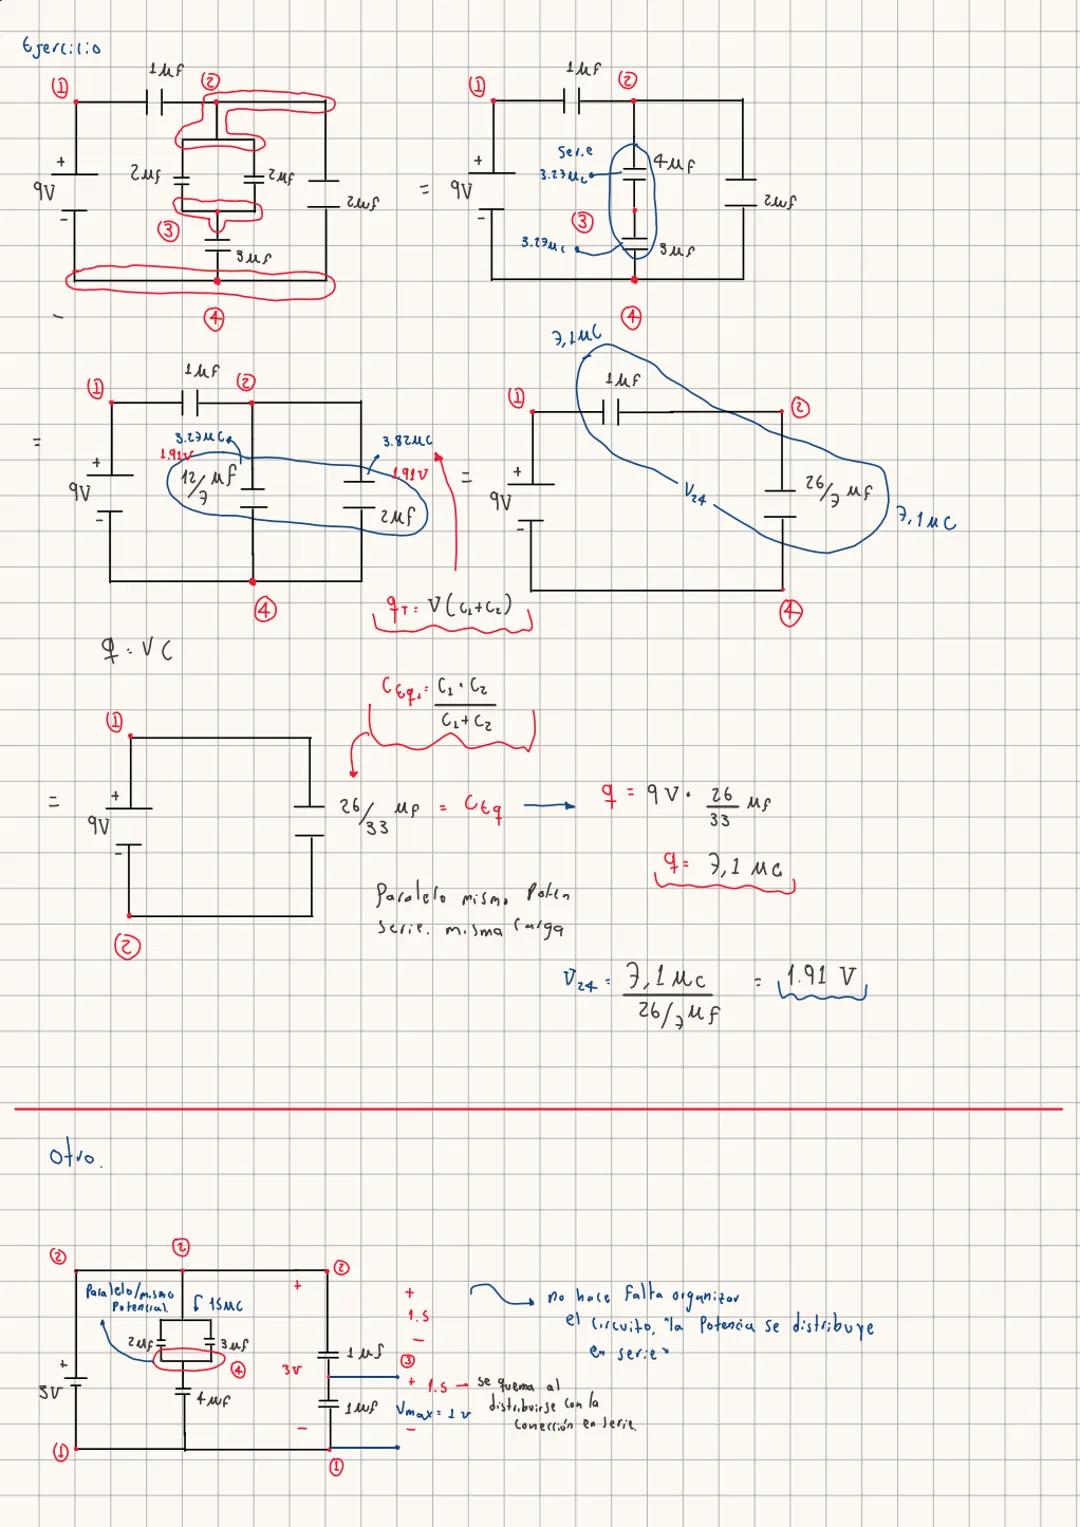 Ejercicio
1μf
①
②
+
9V
-
2μf
2μf
2μf
③
3μf
④
=
1μf
①
②
+
9V
-
Serie
3.27μc
4μf
2μf
③
3.27μc
3μf
④
=
1μf
①
②
3.27μc
1.91V
12/7 μf
3.82μc
1.91V
2μf
+
9V
-
④
qT = V(C1+C2)
q = VC
=
7,1μC
1μf
①
②
+
9V
-
V24
26/7 μf
7,1μC
④
CEq. = C1 · C2
C1 + C2
=
①
+
9V
-
②
26/33 μf = CEq
q = 9V · 26/33 μf
q = 7,1 μC
Paralelo mismo Poten
serie. misma Carga
V24 = 7,1μc / 26/7 μf = 1.91 V
Otro.
②
②
②
Paralelo/mismo
Potencial
15μC
2μf
3μf
④
4μf
+
3V
-
①
+
3V
-
1μf
1μf
①
+
1.5
-
③
+ 1.5 → se quema al
distribuirse con la
Conección en serie.
Vmax = 1v
-
no hace Falta organizar
el circuito, "la Potencia se distribuye
en serie"